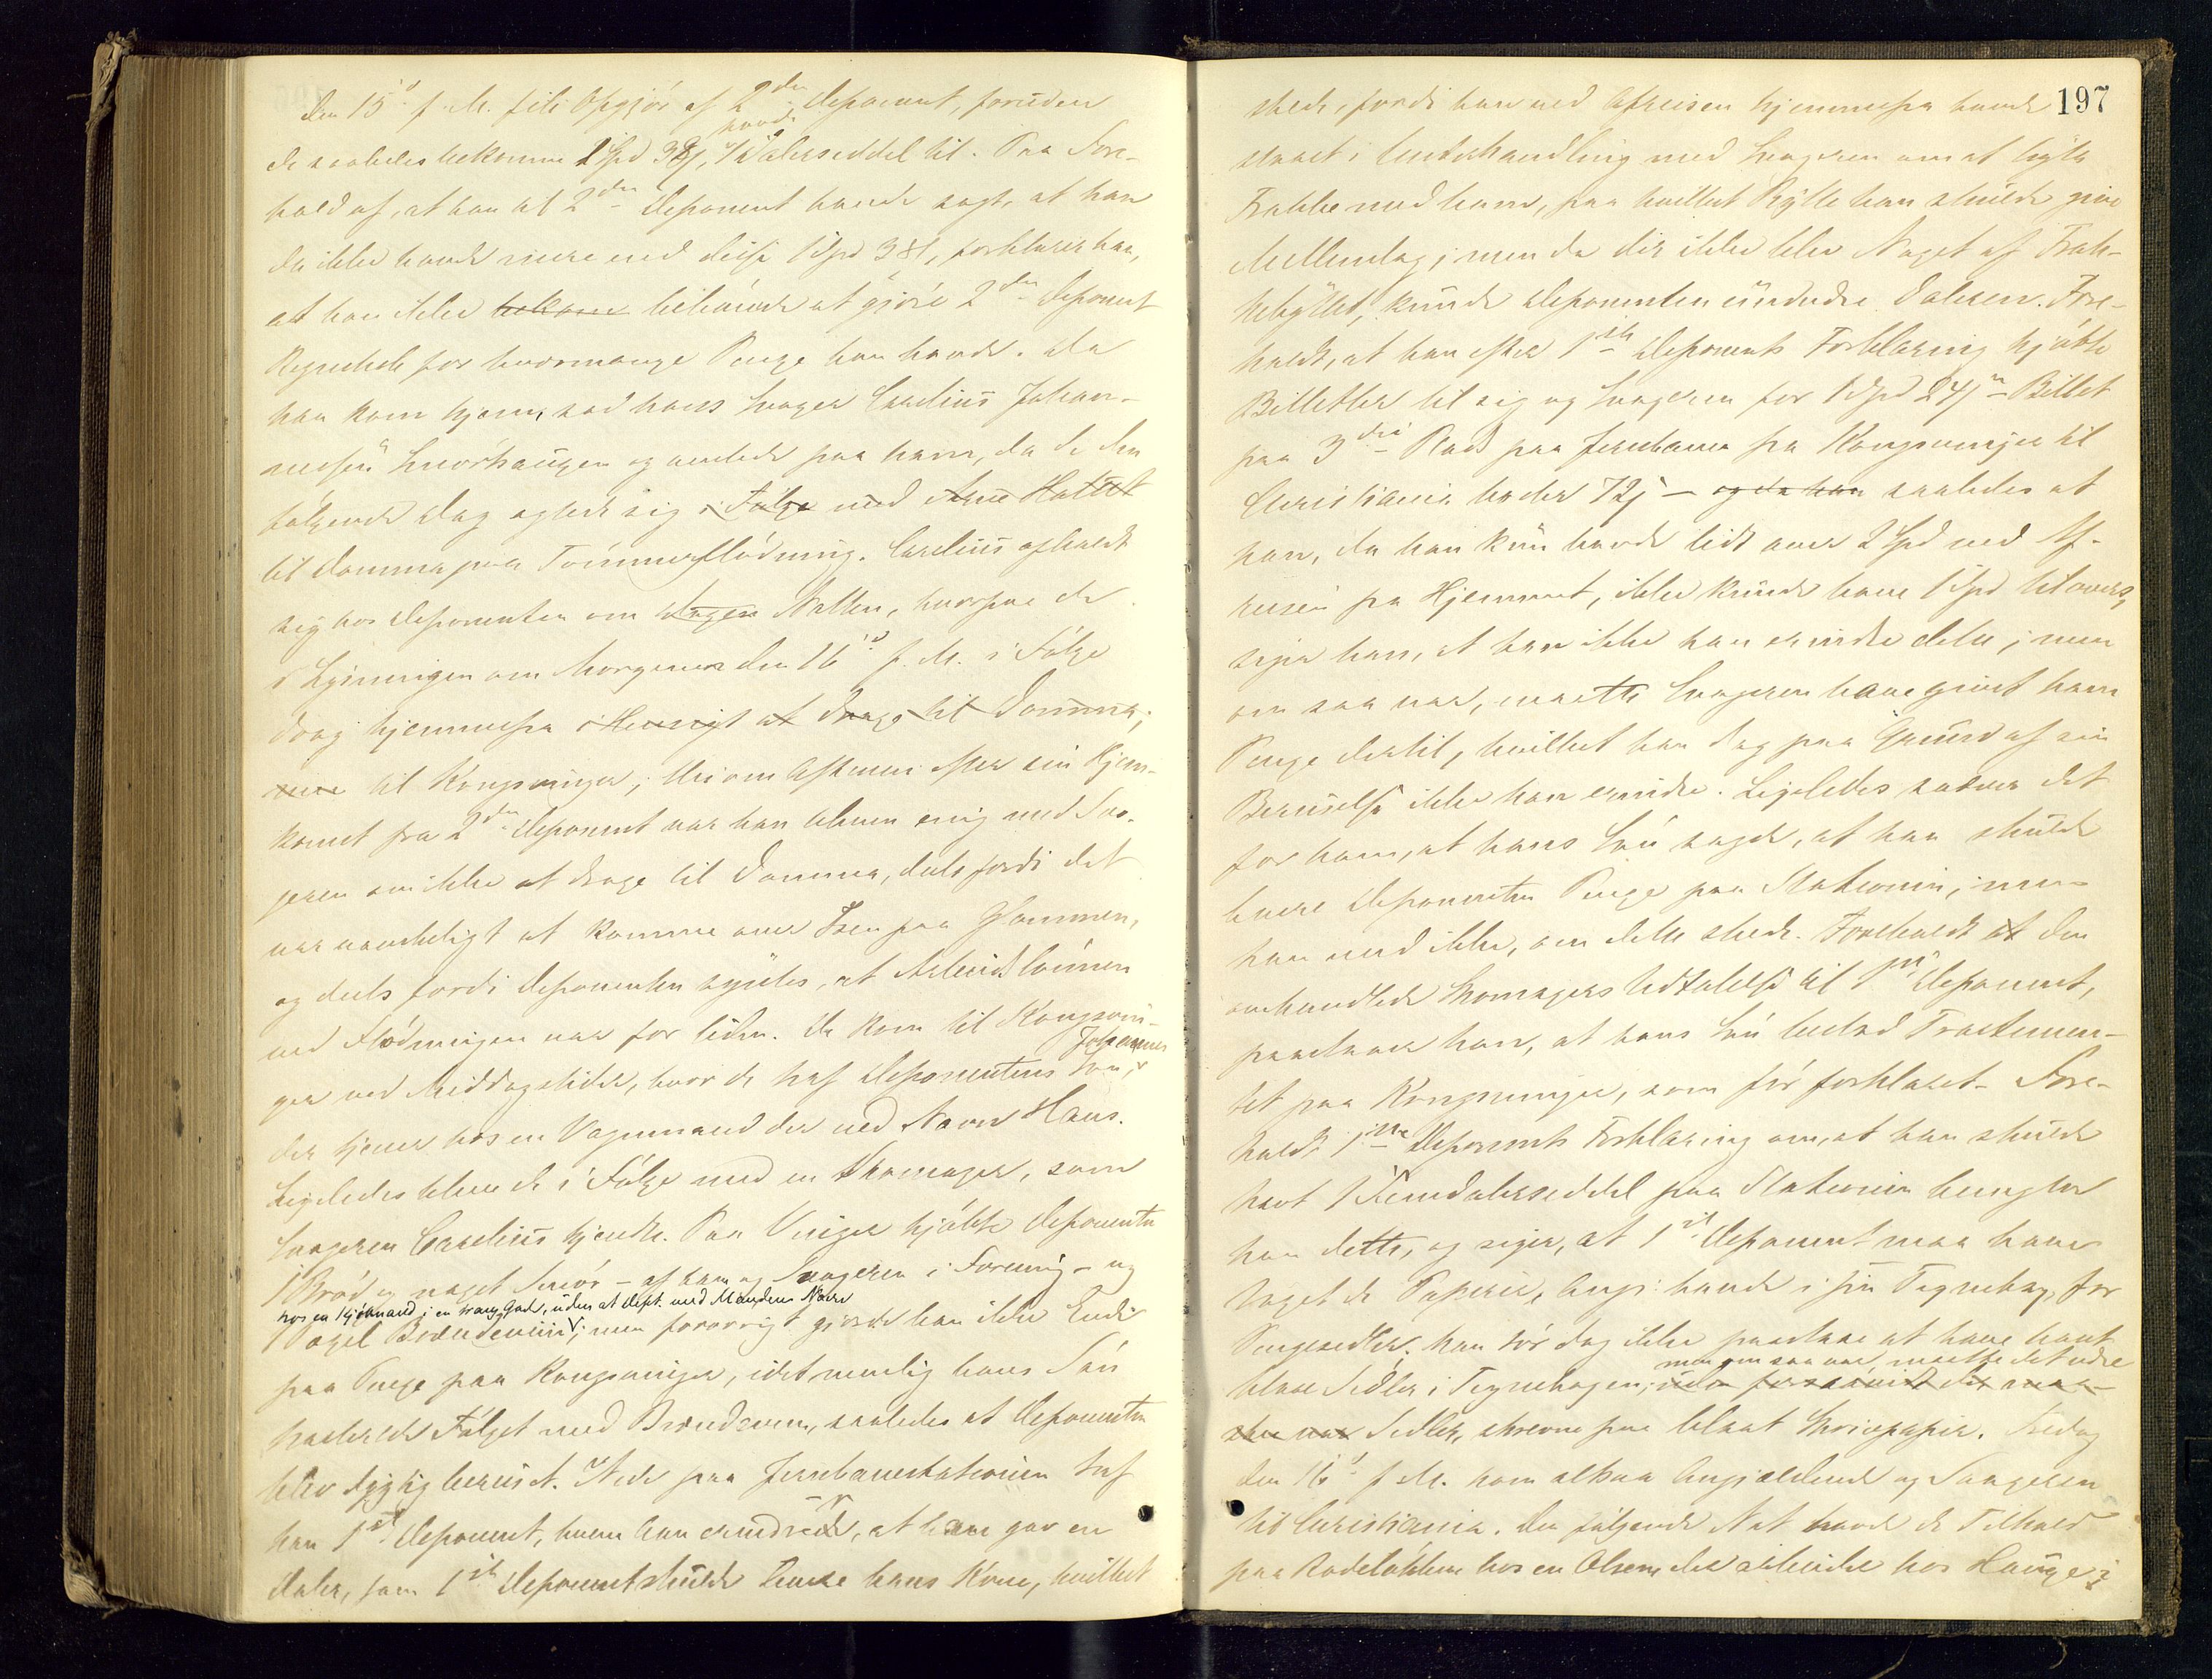 den 15de f. M. fik Opgjør af 2den Deponent, foruden
de saaledes bekomne 1 Spd 38 s, havde 1 Dalerseddel til. Paa Fore-
hold af, at han til 2den Deponent havde sagt, at han
da ikke havde mere end disse 1 Spd 38 s, forklarer han,
at han ikke bekom behøvede at gjøre 2den Deponent
Regnskab for hvormange Penge han havde. Da
han kom hjem, sad hans Svager Carelius Johan-
nessen Snørhaugen og ventede paa ham, da de den
følgende Dag agtede sig i Følge med Arne
til Domma paa Tømmerflødning. Carelius opholdt
sig hos Deponenten om Dagen Natten, hvorpaa de
i Lysningen om Morgenen den 16de f. M. i Følge
drog hjemmefra i Hensigt at drage til Domma;
til Kongsvinger; thi om Aftenen efter sin Hjem-
komst fra 2den Deponent var han bleven enig med Sva-
geren om ikke at drage til Domma, dels fordi det
var vanskeligt at komme over Isen paa Glommen,
og dels fordi Deponenten syntes, at Arbeidslønnen
ved Flødningen var for liden. De kom til Kongsvin-
ger ved Middagstider, hvor de traf Deponentens Søn, Johannes
der tjener hos en Vognmand der ved Navn Hans.
Ligeledes bleve de i Følge med en Skomager, som
Svageren Carelius kjendte. Paa Vinger kjøbte Deponenten
1 Brød og noget Smør - af ham og Svageren i Forening - og
hos en Kjøbmand i en trang Gade, uden at Dept. ved Mandens Navn
1 Pægel Brændeviin; men forøvrigt gjorde han ikke Ende
paa Penge paa Kongsvinger, idet nemlig hans Søn
trakterede Følget med Brændeviin, saaledes at Deponenten
blev dygtig beruset. Nede paa Jernbanestationen traf
han 1ste Deponent, hvem han erindrede, at han gav en
Daler, som 1ste Deponent skulde levere hans Kone, hvilket
197
skede, fordi han ved Afreisen hjemmefra havde
staaet i Underhandling med Svageren om at bytte
Frakke med ham, paa hvilket Bytte han skulde give
Mellemlag; men da der ikke blev Noget af Frak-
kebyttet, kunde Deponenten undvære Daleren. Fore-
holdt, at han efter 1ste Deponents Forklaring kjøbte
Billetter til sig og Svageren for 1 Spd 24 s - Billet
paa 3die Plads paa Jernbanen fra Kongsvinger til
Christiania koster 72 s - og da han saaledes at
han, da han kun havde lidt over 2 Spd ved Af-
reisen fra Hjemmet, ikke kunde have 1 Spd tilovers,
siger han, at han ikke kan erindre dette; men
om saa var, maatte Svageren have givet ham
Penge dertil, hvilket han dog paa Grund af sin
Beruselse ikke kan erindre. Ligeledes sætter det
for ham, at hans Søn sagde, at han skulde
levere Deponenten Penge paa Stationen, men
han ved ikke, om dette skede. Foreholdt at den
omhandlede Skomagers Udtalelse til 1ste Deponent,
paastaar han, at hans Søn bestod Traktemen-
tet paa Kongsvinger, som før forklaret. Fore-
holdt 1ste Deponents Forklaring om, at han skulde
havt 1 Femdalerseddel paa Stationen benegter
han dette, og siger, at 1ste Deponent maa have
taget de Papirer, Angj: havde i sin Tegnebog, for
Pengesedler. Han tør dog ikke paastaa at have havt
blaae Sedler i Tegnebogen; men om saa var, maatte det være
Sedler, skrevne paa blaat Skrivpapir. Fredag
den 16de f. M. kom altsaa Angjældende og Svageren
til Christiania. Den følgende Nat havde de Tilhold
paa Rodeløkken hos en Olsen der arbeider hos Hauge;